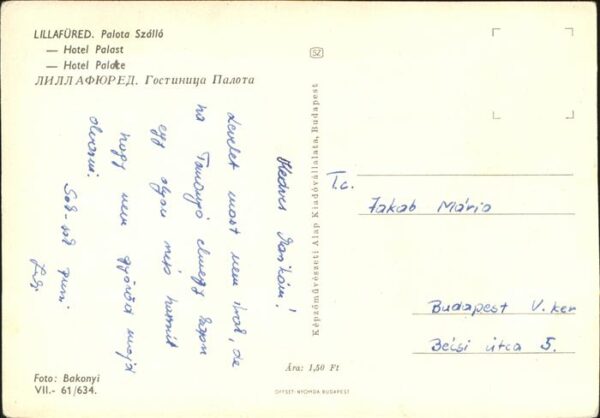 LILLAFÜRED. Palota Szálló
— Hotel Palast
— Hotel Palace
ЛИЛЛАФЮРЕД. Гостиница Палота
Kedves Marikám!
Levelet most nem írok, de
ha
egy olyan
hogy nem győzöd majd
olvasni.
Sok-sok puszi
SZ
Képzőművészeti Alap Kiadóvállalata, Budapest
T.c.
Jakab Mária
Budapest V. ker
Bécsi utca 5.
Foto: Bakonyi
VII.- 61/634.
Ára: 1,50 Ft
OFFSET-NYOMDA BUDAPEST